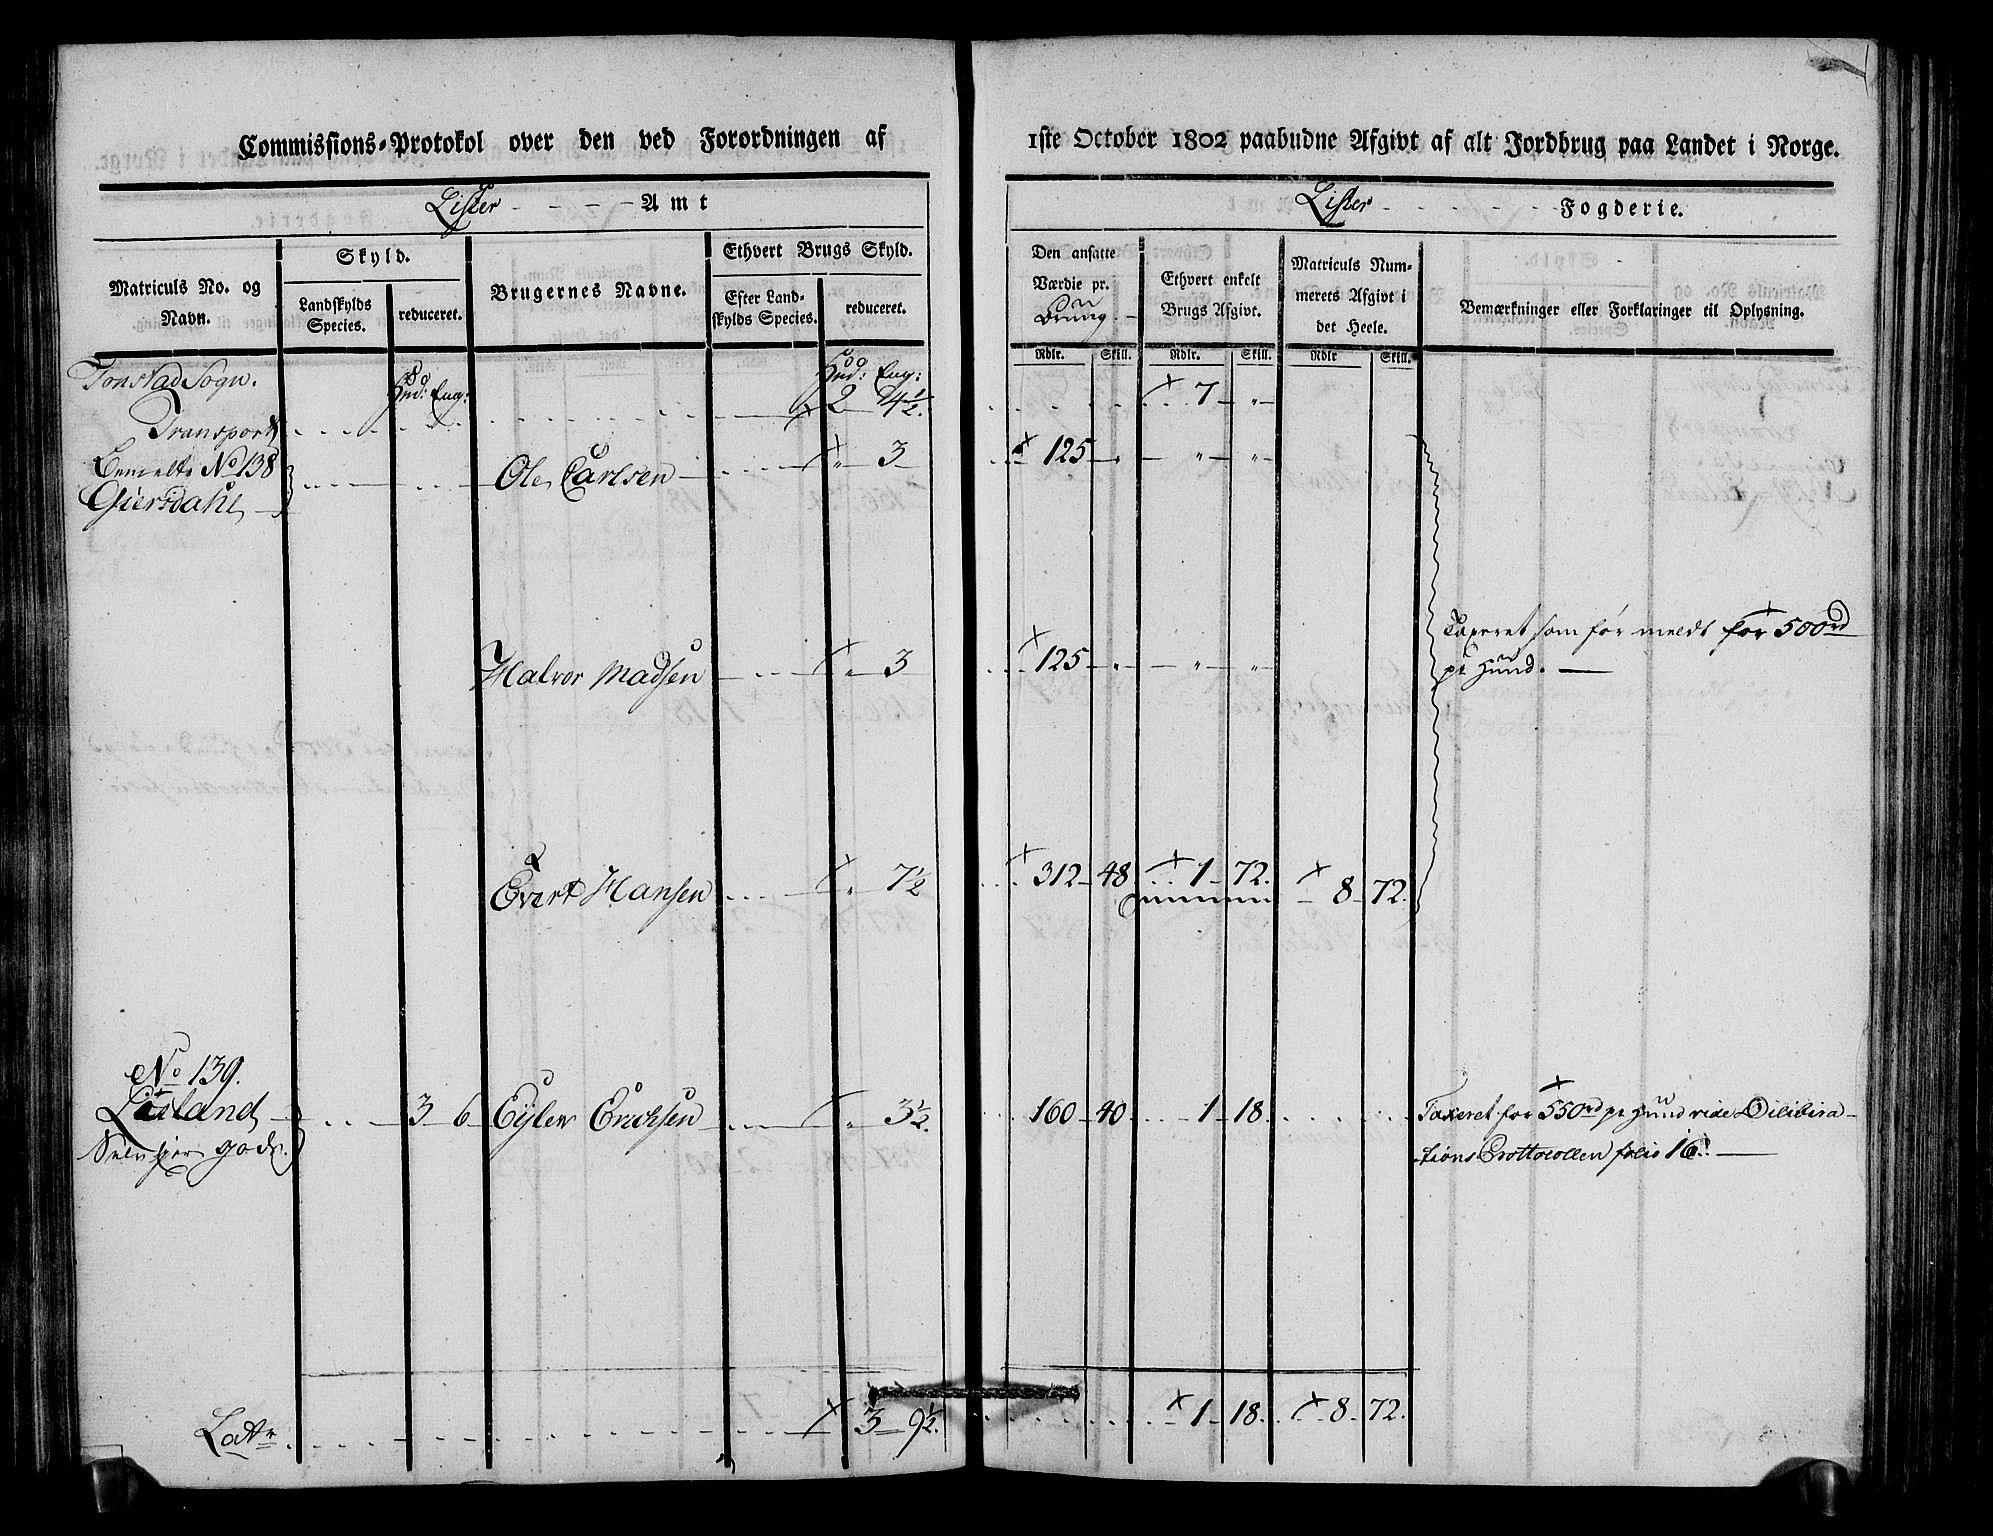 Commissions-Protokol over den ved Forordningen af 1ste October 1802 paabudne Afgivt af alt Jordbrug paa Landet i Norge.
Lister Amt
Lister Fogderie.
Matriculs No. og Navn.
Skyld.
Landskylds Species.
reduceret.
Brugernes Navne.
Ethvert Brugs Skyld.
Efter Landskylds Species.
reduceret.
Den ansatte Værdie pr.
Ethvert enkelt Brugs Afgivt.
Matriculs Nummerets Afgivt i det Heele.
Bemærkninger eller Forklaringer til Oplysning.
Rdlr. Skill. Rdlr. Skill. Rdlr Skill.
Tonstad Sogn. Hud: Eng: Hud: Eng:
Transport 2 4½. 7 "
No 138 Ole Carlsen " 3 125 " " "
Giersdahl
Halvor Madsen " 3 125 " " "
Taxeret som før meldt for 500rd
pr Hund.
Evert Hansen " 7½ 312 48 1 72. 8 72.
No 139.
Lisland 3 6 Eyler Erichsen " 3½. 160 40 1 18.
Taxeret for 550rd pr Hund vide Dilibira-
tions Prottocollen folio 16.
gods.
Latr 3 9½. 1 18. 8 72.